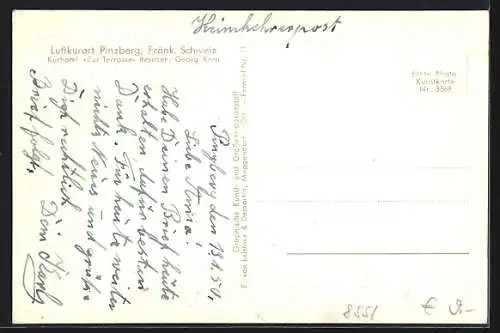 Heimkehrerpost
Luftkurort Pinzberg, Fränk. Schweiz
Kurhotel »Zur Terrasse« Besitzer: Georg Kern
Pinzberg den 19.1.54.
Liebe Anna!
Habe Deinen Brief heute
erhalten dafür besten
Dank. Für heute weiter
nichts Neues und grüße
Dich recht lich
Brief folgt. Dein Karl
Graphische Kunst- und Großverlagsanstalt
E. von Leistner & Demattio, Maggendorf
Echte Photo
Kunstkarte
Nr. 3568
8551
€ 9.-